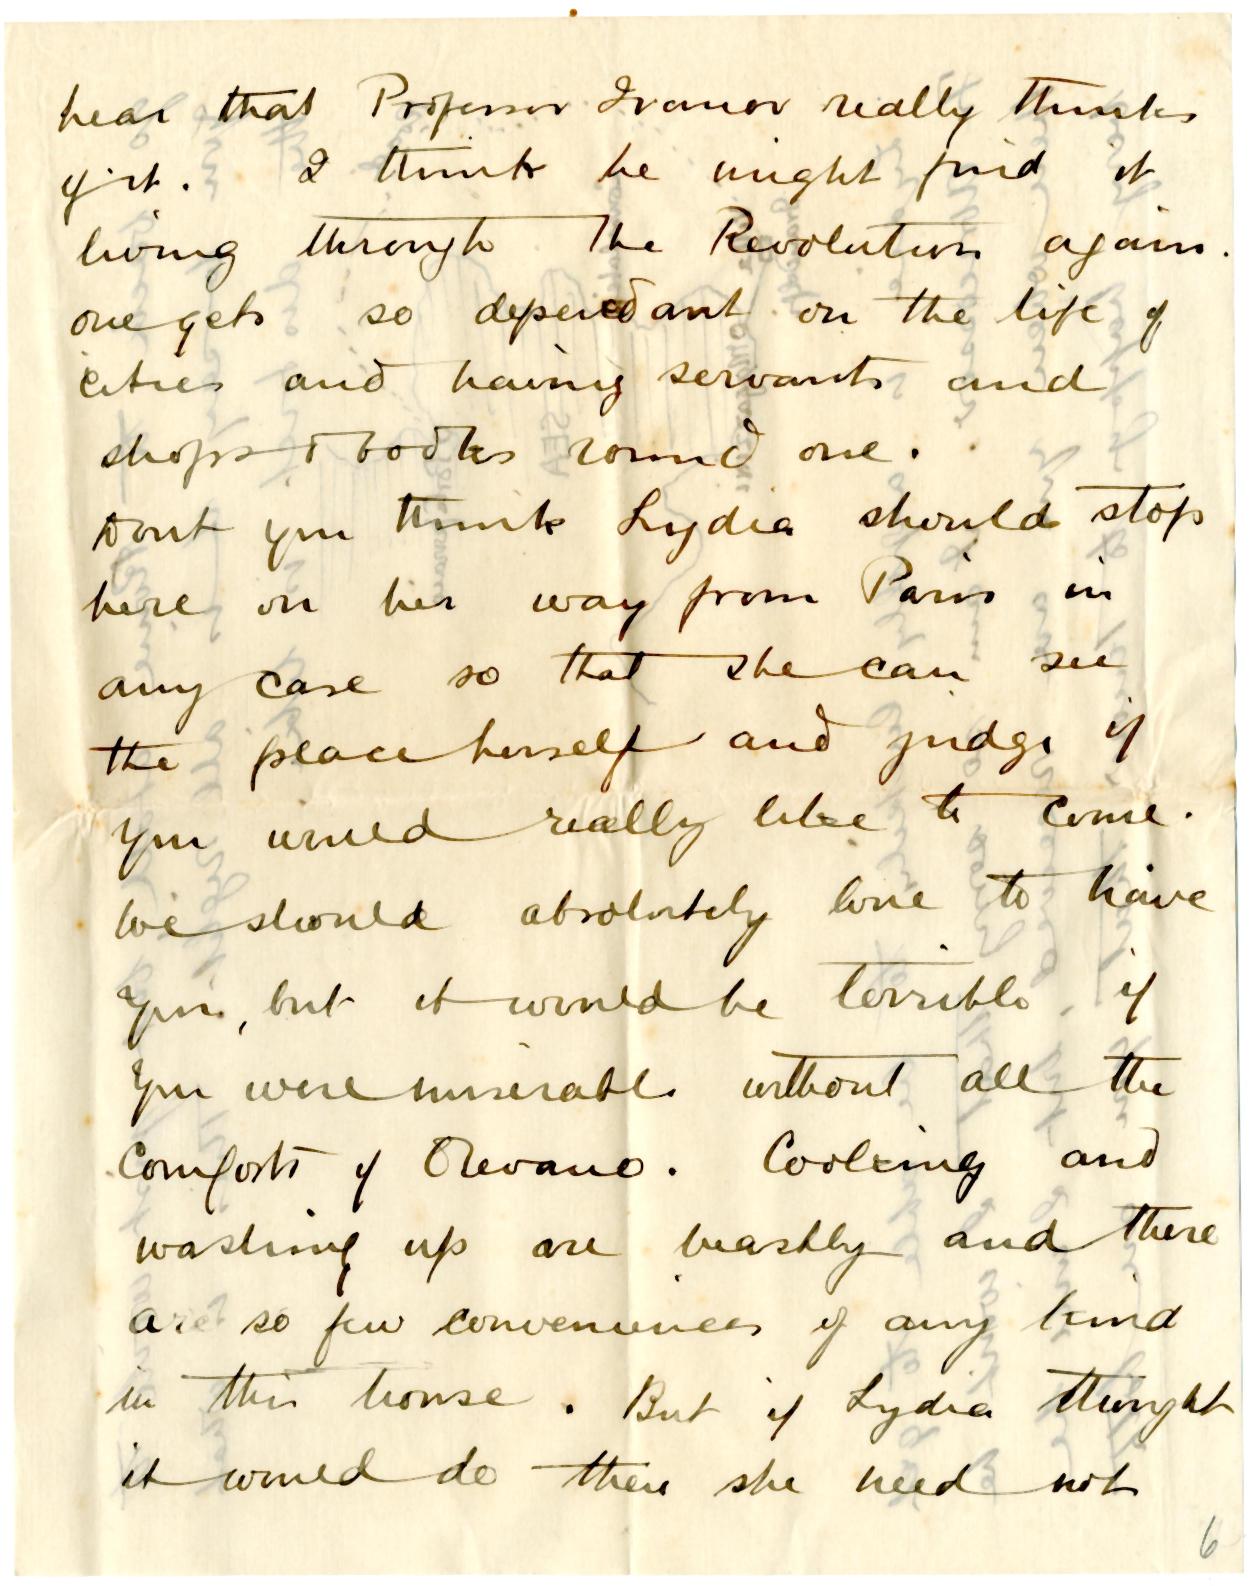 hear that Professor Ivanov really thinks
of it. I think he might find it
living through the Revolution again.
one gets so dependant on the life of
cities and having servants and
shops & books round one.
Dont you think Lydia should stop
here on her way from Paris in
any case so that she can see
the place herself and judge if
you would really like to come.
We should absolutely love to have
you, but it would be terrible if
you were miserable without all the
comforts of Olevano. Cooking and
washing up are beastly and there
are so few conveniences of any kind
in this house. But if Lydia thought
it would do then she need not
6